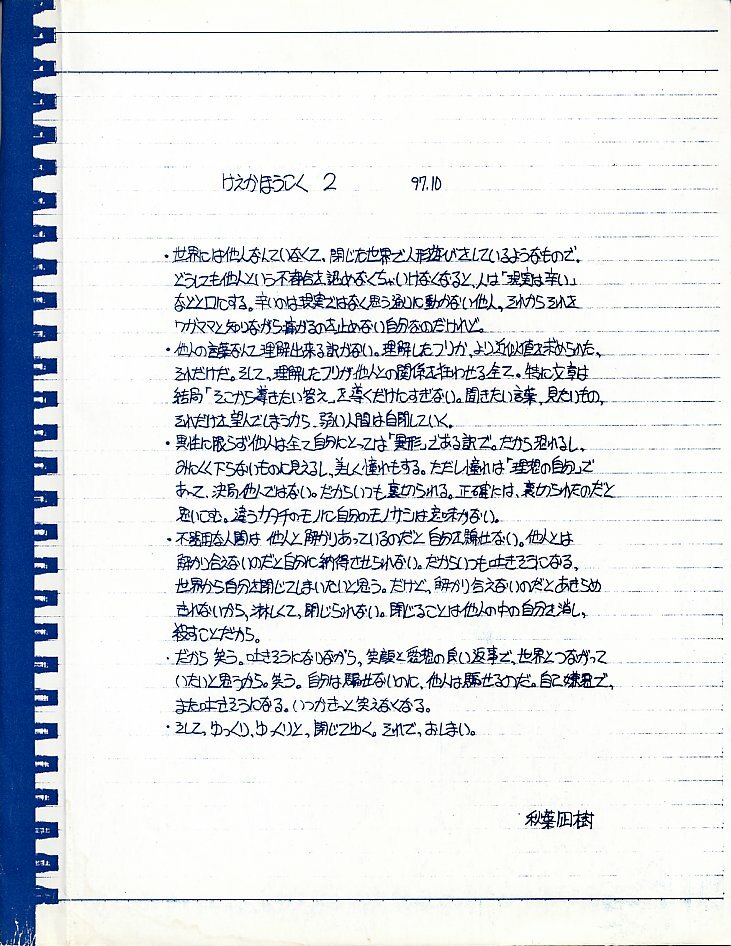 けえかほうこく 2　97.10
・世界には他人なんていなくて、閉じた世界で人形遊びをしているようなもので。
どうしても他人という不都合を認めなくちゃいけなくなると、人は「現実は辛い」
などと口にする。辛いのは現実ではなく思う通りに動かない他人、それからそれを
ワガママと知りながら嘆かるのを止めない自分なのだけれど。
・他人の言葉なんて理解出来る訳がない。理解したフリか、より近似値を求められた、
それだけだ。そして、理解したフリが他人との関係を狂わせる全て。特に文章は
結局「そこから導きたい答え」を導くだけにすぎない。聞きたい言葉、見たいもの、
それだけを望んでしまうから、弱い人間は自閉していく。
・異性に限らず他人は全て自分にとっては「異形」である訳で。だから恐れるし、
みにくく下らないものに見えるし、美しく憧れもする。ただし憧れは「理想の自分」で
あって、決局他人ではない。だからいつも裏切られる。正確には、裏切られたのだと
思いこむ。違うカタチのモノに自分のモノサシは意味がない。
・不器用な人間は他人と解かりあっているのだと自分を騙せない。他人とは
解かり合えないのだと自分に納得させられない。だからいつも吐きそうになる、
世界から自分を閉じてしまいたいと思う。だけど、解かり合えないのだとあきらめ
きれないから、淋しくて、閉じられない。閉じることは他人の中の自分を消し、
殺すことだから。
・だから笑う。吐きそうになりながら、笑顔と愛想の良い返事で、世界とつながって
いたいと思うから。笑う。自分は騙せないのに、他人は騙せるのだ。自己嫌悪で、
また吐きそうになる。いつかきっと笑えなくなる。
・そして、ゆっくり、ゆっくりと、閉じてゆく。それで、おしまい。
秋葉凪樹